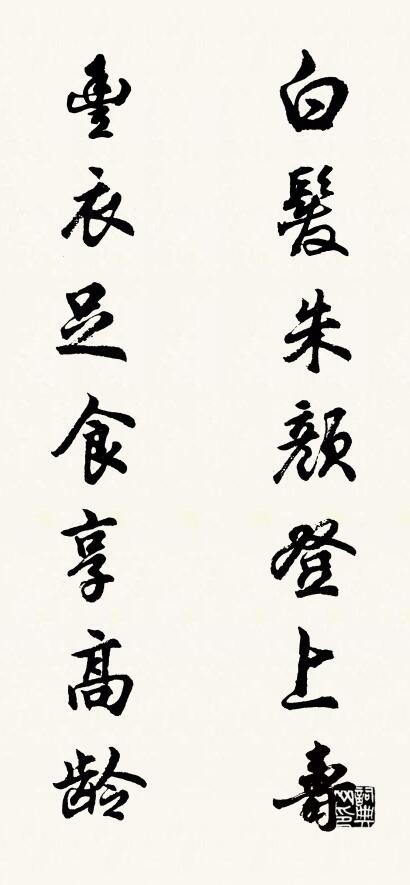 白髮朱顏登上壽
豐衣足食享高齡